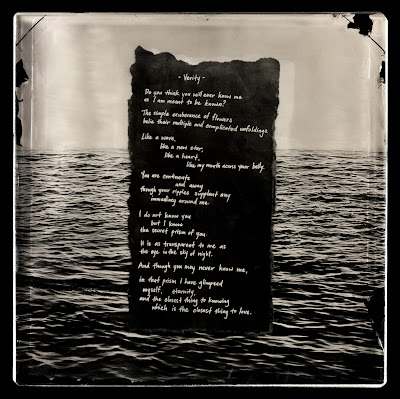 - Verity -
Do you think you will ever know me
as I am meant to be known?
The simple exuberance of flowers
belie their multiple and complicated unfoldings.
Like a wave,
like a new star,
like a heart,
like my mouth across your body.
You are
and away
though your ripples supplant any
immediacy around me.
I do not know you
but I know
the secret prism of you.
It is as transparent to me as
the eye in the sky of night.
And though you may never know me,
in that prism I have glimpsed
myself, eternity,
and the closest thing to knowing
which is the closest thing to love.